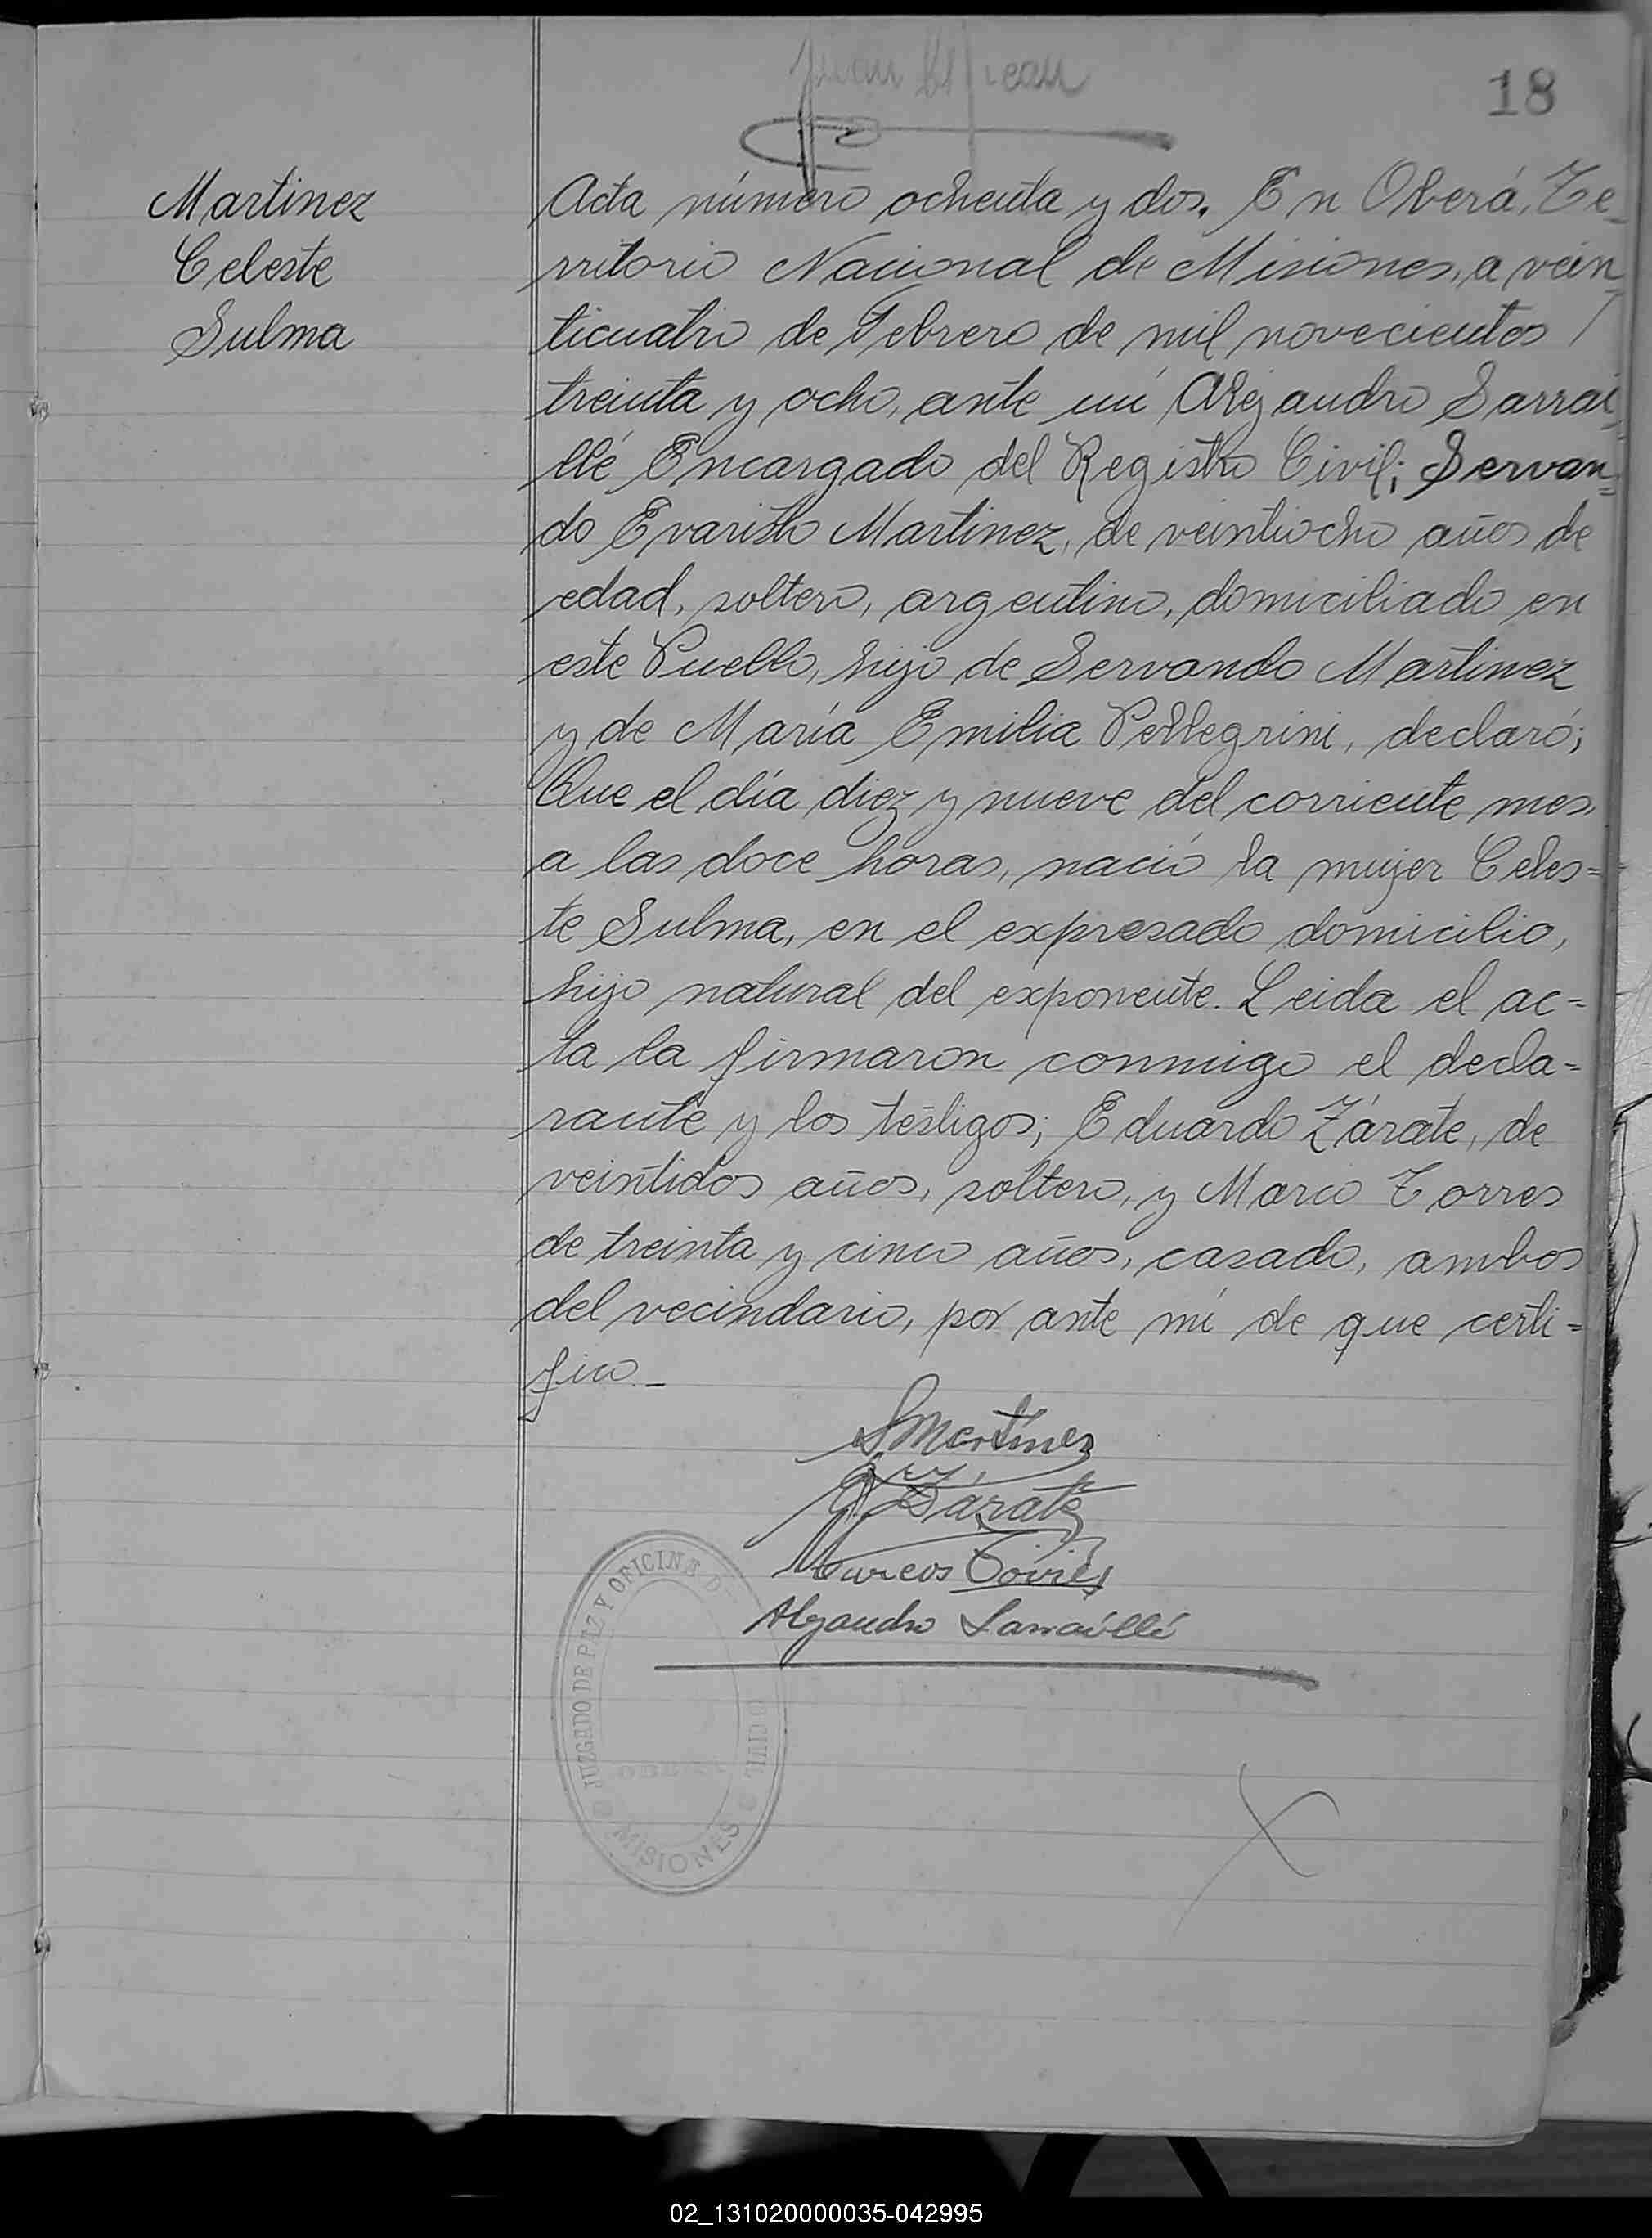 18
Martinez
Celeste
Sulma
Acta número ochenta y dos. En Oberá, Te-
rritorio Nacional de Misiones, a vein
ticuatro de Febrero de mil novecientos /
treinta y ocho, ante mí Alejandro Sarrai
llé Encargado del Registro Civil; Servan=
do Evaristo Martinez, de veintiocho años de
edad, soltero, argentino, domiciliado en
este Pueblo, hijo de Servando Martinez
y de María Emilia Pellegrini, declaró;
Que el día diez y nueve del corriente mes,
a las doce horas, nació la mujer Celes=
te Sulma, en el expresado domicilio,
hijo natural del exponente. Leida el ac=
ta la firmaron conmigo el decla=
rante y los testigos; Eduardo Zárate, de
veintidos años, soltero, y Marco Torres
de treinta y cinco años, casado, ambos
del vecindario, por ante mí de que certi=
fico._
SMartinez
Zárate
Marcos Torres
Alejandro Sarraillé
JUZGADO DE PAZ Y OFICINA DE
CIVIL
OBERA
MISIONES
02_131020000035-042995